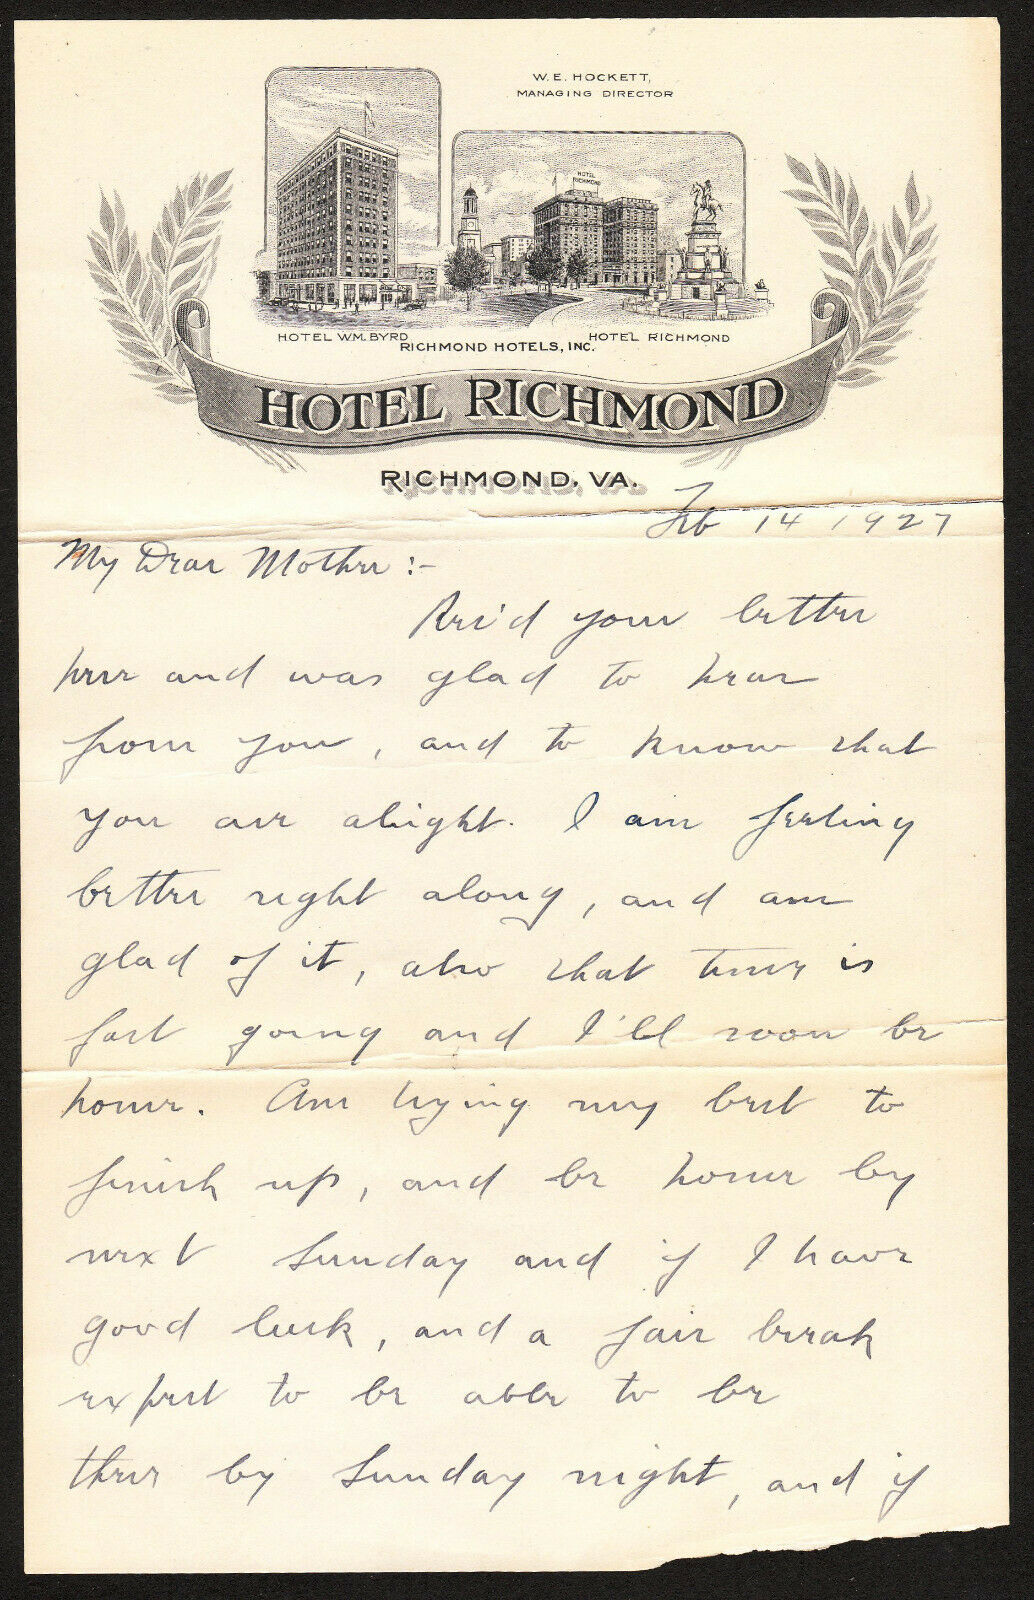 W. E. HOCKETT,
MANAGING DIRECTOR
HOTEL
RICHMOND
HOTEL WM. BYRD
HOTEL RICHMOND
RICHMOND HOTELS, INC.
HOTEL RICHMOND
RICHMOND, VA.
Feb 14 1927
My Dear Mother :-
Rec'd your letter
here and was glad to hear
from you, and to know that
you are alright. I am feeling
better right along, and am
glad of it, also that time is
fast going and I'll soon be
home. Am trying my best to
finish up, and be home by
next Sunday and if I have
good luck, and a fair break
expect to be able to be
there by Sunday night, and if